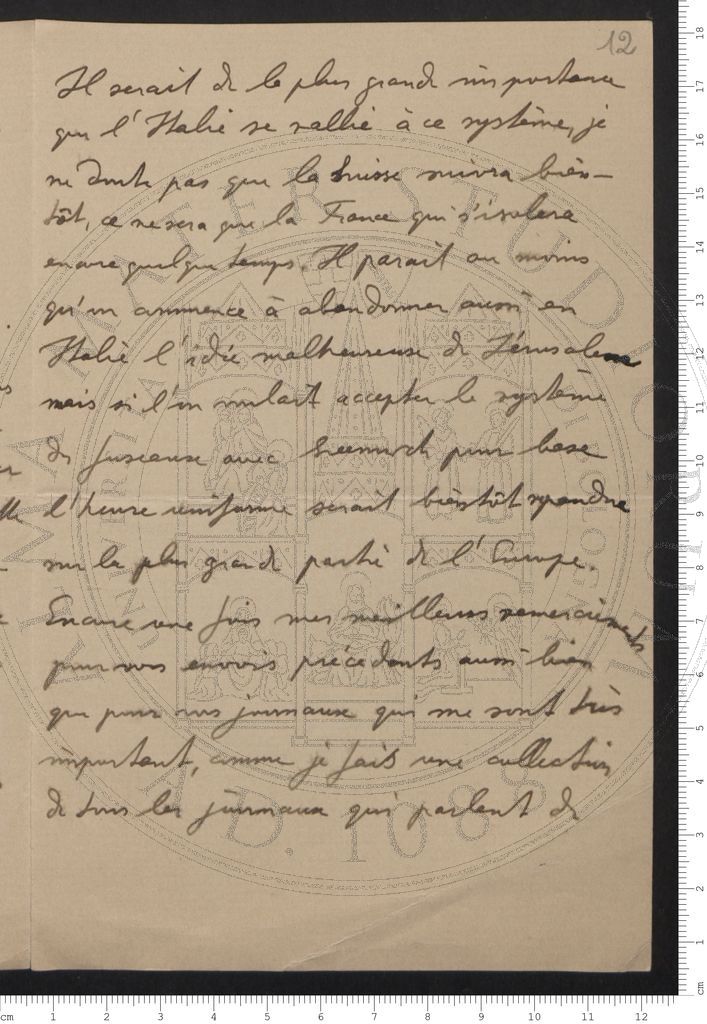 12
Il serait de la plus grande importance
que l'Italie se rallie à ce système, je
ne doute pas que la Suisse suivra bien-
tôt, ce ne sera que la France qui s'isolera
encore quelque temps. Il parait au moins
qu'on commence à abandonner aussi en
Italie l'idée malheureuse de Jérusalem
mais si l'on voulait accepter le système
de fuseaux avec Greenwich pour base
l'heure uniforme serait bientôt repandue
sur la plus grande partie de l'Europe.
Encore une fois mes meilleurs remerciements
pour vos envois précédents aussi bien
que pour vos journaux qui me sont très
important, comme je fais une collection
de tous les journaux qui parlent de
ALMA MATER STUDIORUM
A.D. 1088
cm 1 2 3 4 5 6 7 8 9 10 11 12
18
17
16
15
14
13
12
11
10
9
8
7
6
5
4
3
2
1
cm